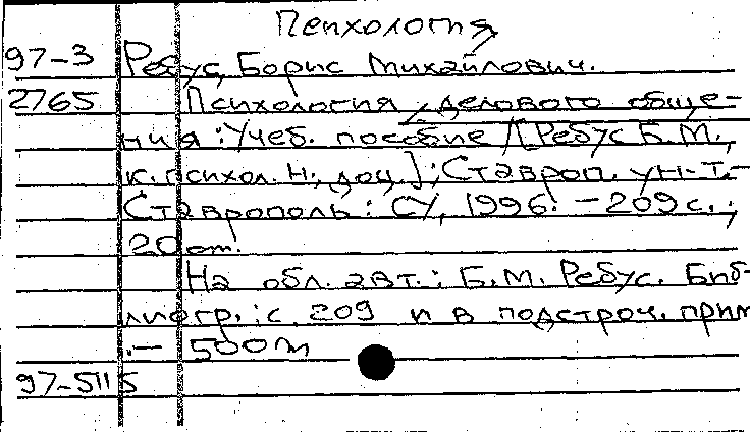 Психология
97-3 Ребус, Борис Михайлович.
2765 Психология делового обще-
ния : Учеб. пособие / [Ребус Б.М.,
к.психол.н., доц.]; Ставроп. ун-т.-
Ставрополь : СУ, 1996. - 209 с. ;
20 см.
На обл. авт.: Б.М. Ребус. Биб-
лиогр.: с. 209 и в подстроч. прим
.- 500 м
97-5115